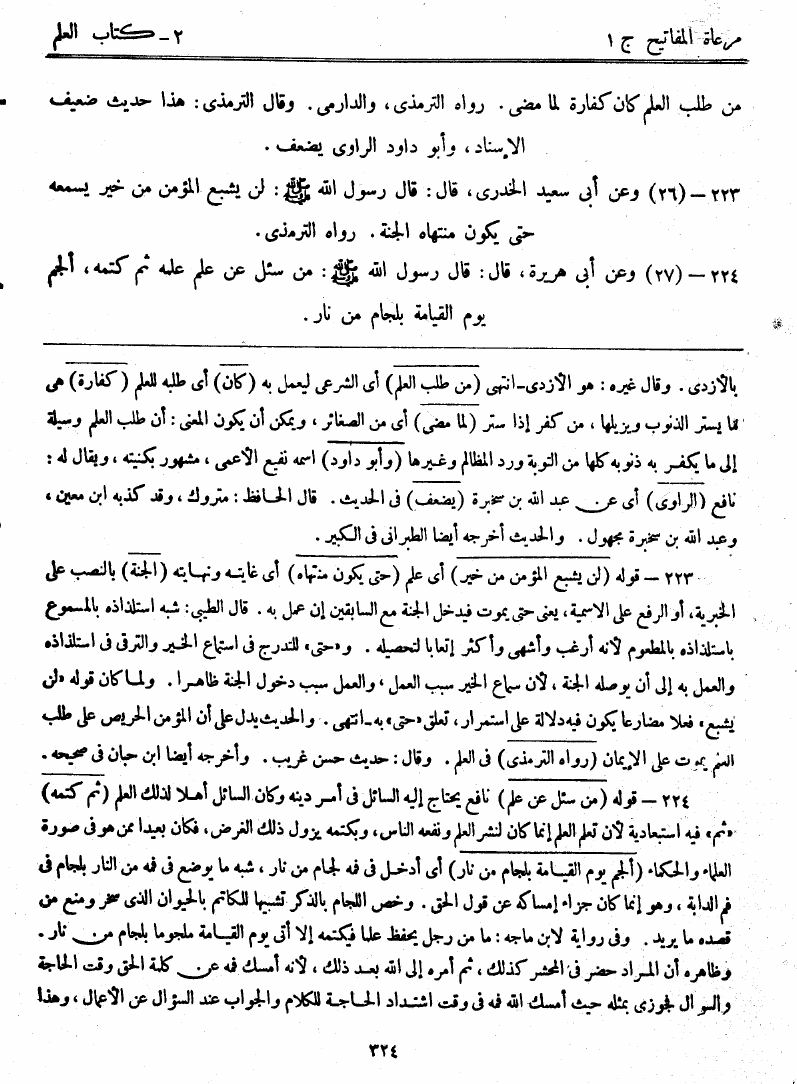 مرعاة المفاتيح ج ١
٢ - كتاب العلم
من طلب العلم كان كفارة لما مضى. رواه الترمذى، والدارمى. وقال الترمذى: هذا حديث ضعيف
الإسناد، وأبو داود الراوى يضعف.
٢٢٣ – (٢٦) وعن أبى سعيد الخدرى، قال: قال رسول الله ﷺ: لن يشبع المؤمن من خير يسمعه
حتى يكون منتهاه الجنة. رواه الترمذى.
٢٢٤ – (٢٧) وعن أبى هريرة، قال: قال رسول الله ﷺ: من سئل عن علم علمه ثم كتمه، ألجم
يوم القيامة بلجام من نار.
بالأزدى. وقال غيره: هو الأزدى-انتهى (من طلب العلم) أى الشرعى ليعمل به (كان) أى طلبه للعلم (كفارة) هى
مما يستر الذنوب ويزيلها، من كفر إذا ستر (لما مضى) أى من الصغائر، ويمكن أن يكون المعنى: أن طلب العلم وسيلة
إلى ما يكفر به ذنوبه كلها من التوبة ورد المظالم وغيرها (وأبو داود) اسمه نفيع الأعمى، مشهور بكنيته، ويقال له:
نافع (الراوى) أى عن عبد الله بن سخبرة (يضعف) فى الحديث. قال الحافظ: متروك، وقد كذبه ابن معين،
وعبد الله بن سخبرة مجهول. والحديث أخرجه أيضا الطبرانى فى الكبير.
٢٢٣ – قوله (لن يشبع المؤمن من خير) أى علم (حتى يكون منتهاه) أى غايته ونهايته (الجنة) بالنصب على
الخبرية، أو الرفع على الاسمية، يعنى حتى يموت فيدخل الجنة مع السابقين إن عمل به. قال الطيبى: شبه استلذاذه بالمسموع
باستلذاذه بالمطعوم لأنه أرغب وأشهى وأكثر إتعابا لتحصيله. و«حتى» للتدرج فى استماع الخير والترقى فى استلذاذه
والعمل به إلى أن يوصله الجنة، لأن سماع الخير سبب العمل، والعمل سبب دخول الجنة ظاهرا. ولما كان قوله «لن
يشبع» فعلا مضارعا يكون فيه دلالة على استمرار، تعلق «حتى» به-انتهى. والحديث يدل على أن المؤمن الحريص على طلب
العلم يموت على الإيمان (رواه الترمذى) فى العلم. وقال: حديث حسن غريب. وأخرجه أيضا ابن حبان فى صحيحه.
٢٢٤ – قوله (من سئل عن علم) نافع يحتاج إليه السائل فى أمر دينه وكان السائل أهلا لذلك العلم (ثم كتمه)
«ثم» فيه استبعادية لأن تعلم العلم إنما كان لنشر العلم ونفعه الناس، وبكتمه يزول ذلك الغرض، فكان بعيدا ممن هو فى صورة
العلماء والحكماء (ألجم يوم القيامة بلجام من نار) أى أدخل فى فه لجام من نار، شبه ما يوضع فى فه من النار بلجام فى
فم الدابة، وهو إنما كان جزاء إمساكه عن قول الحق. وخص اللجام بالذكر تشبيها للكاتم بالحيوان الذى سخر ومنع من
قصده ما يريد. وفى رواية لابن ماجه: ما من رجل يحفظ علما فيكتمه إلا أتى يوم القيامة ملجوما بلجام من نار.
وظاهره أن المراد حضر فى المحشر كذلك، ثم أمره إلى الله بعد ذلك، لأنه أمسك فه عن كلمة الحق وقت الحاجة
والسوال فجوزى بمثله حيث أمسك الله فه فى وقت اشتداد الحاجة للكلام والجواب عند السؤال عن الأعمال، وهذا
٣٢٤